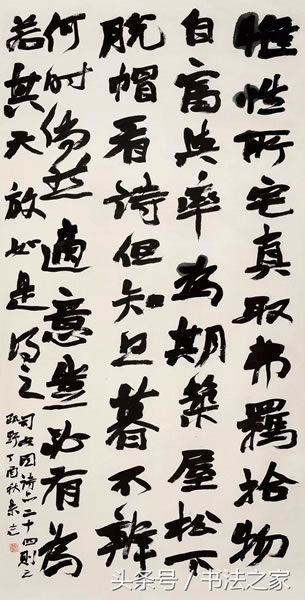 惟性所宅真取弗羈拾物
自富與率為期築屋松下
脱帽看詩但知旦暮不辨
何时倘然適意豈必有為
若其天放如是得之
司空图诗品二十四則之
疏野丁酉秋
头条号 / 书法之家